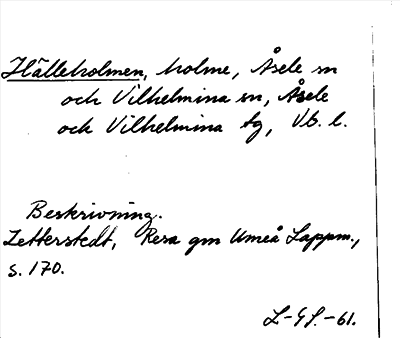 Hälleholmen, holme, Åsele sn
och Vilhelmina sn, Åsele
och Vilhelmina tg, Vb. l.
Beskrivning.
Zetterstedt, Resa gm Umeå Lappm.,
s. 170.
L-GS.-61.